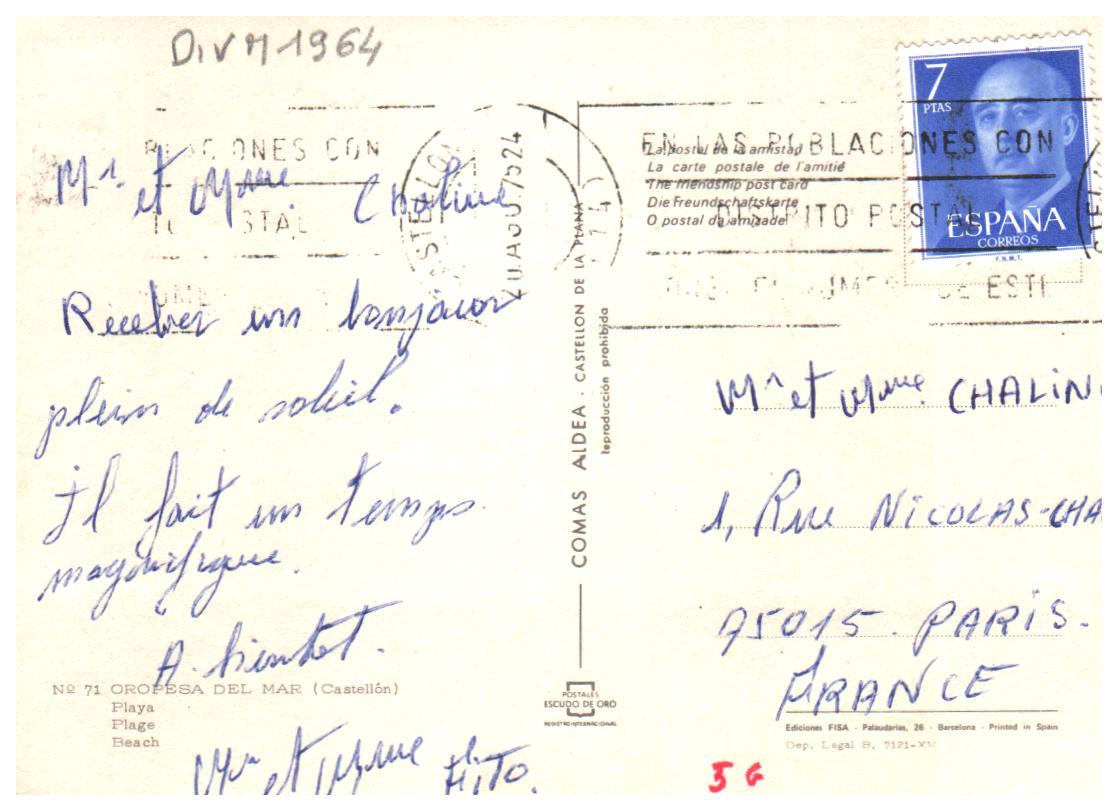 DIVM1964
7
PTAS
ESPAÑA
CORREOS
F.N.M.T.
EN LAS POBLACIONES CON
DISTRITO POSTAL
ONES CON
STAL
La postal de la amistad
La carte postale de l'amitié
The friendship post card
Die Freundschaftskarte
O postal da amizade
Mr. et Mme. Chaline
Recever un bonjour
plein de soleil.
Il fait un temps
magnifique.
A. bientot.
Mr et Mme HITO.
COMAS ALDEA · CASTELLON DE LA PLANA
reproducción prohibida
Mr et Mme CHALIN
1, Rue NICOLAS-CHA
75015. PARIS.
FRANCE
Nº 71 OROPESA DEL MAR (Castellón)
Playa
Plage
Beach
POSTALES
ESCUDO DE ORO
REGISTRO INTERNACIONAL
Ediciones FISA - Palaudarias, 26 - Barcelona - Printed in Spain
Dep. Legal B. 7121-XV
5 G